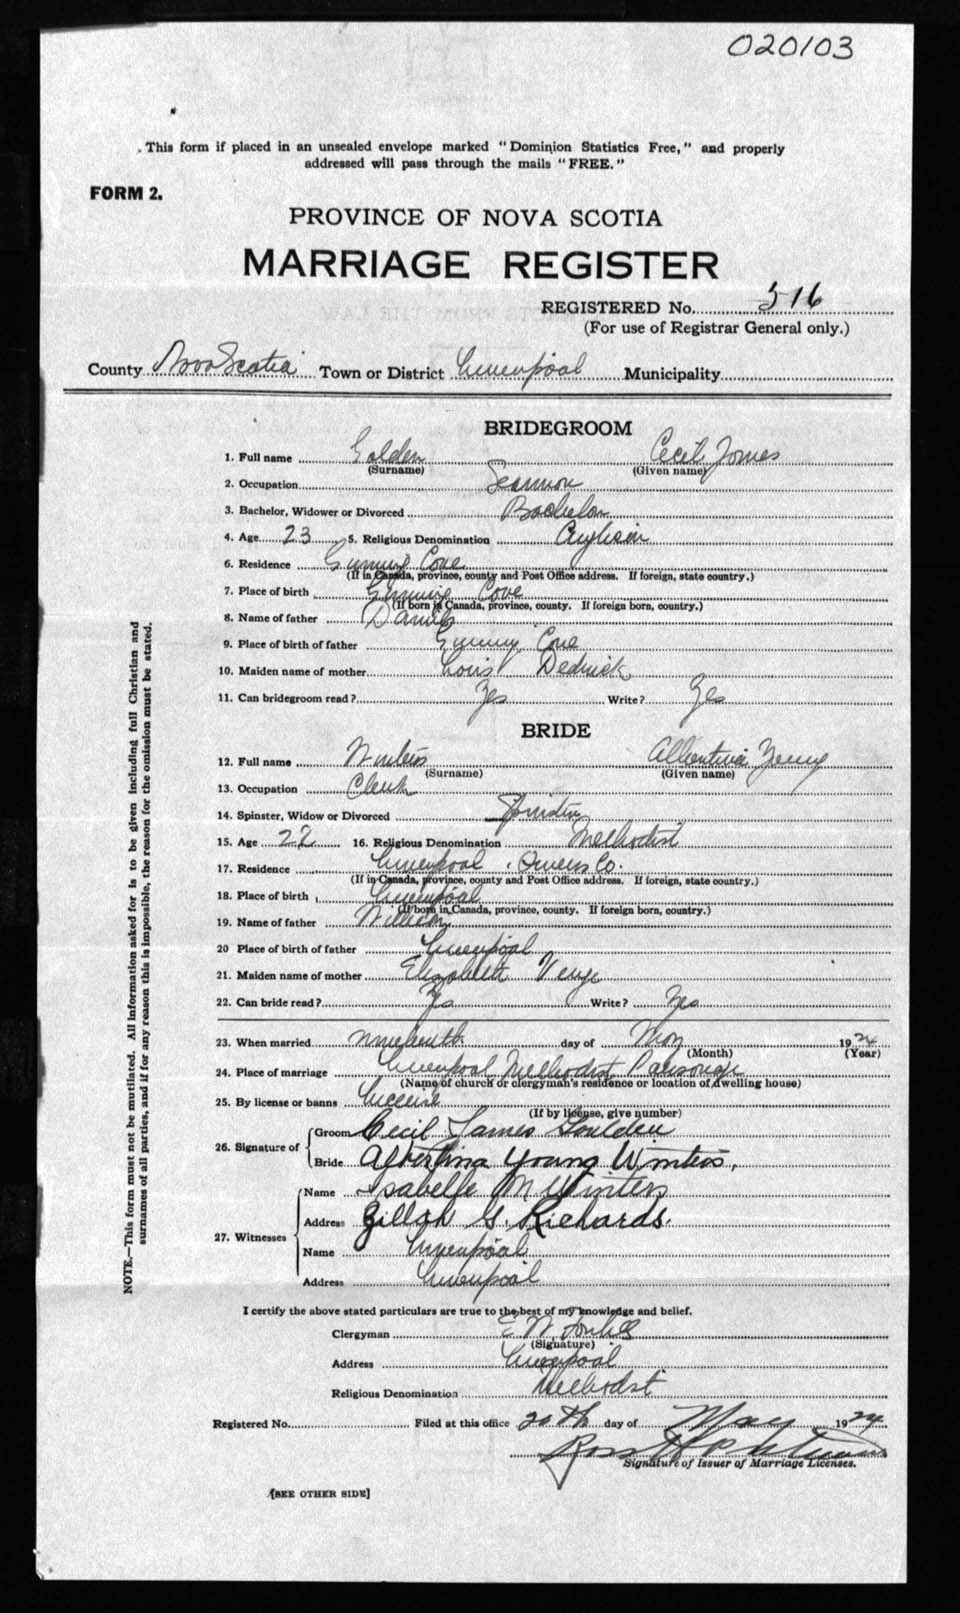 020103
This form if placed in an unsealed envelope marked "Dominion Statistics Free," and properly
addressed will pass through the mails "FREE."
FORM 2.
PROVINCE OF NOVA SCOTIA
MARRIAGE REGISTER
REGISTERED No. 516
(For use of Registrar General only.)
County Nova Scotia Town or District Liverpool Municipality
BRIDEGROOM
1. Full name Golden Cecil James
(Surname) (Given name)
2. Occupation Seaman
3. Bachelor, Widower or Divorced Bachelor
4. Age 23 5. Religious Denomination Anglican
6. Residence Gunning Cove
(If in Canada, province, county and Post Office address. If foreign, state country.)
7. Place of birth Gunning Cove
(If born in Canada, province, county. If foreign born, country.)
8. Name of father Daniel
9. Place of birth of father Gunning Cove
10. Maiden name of mother Lois Dedrick
11. Can bridegroom read? Yes Write? Yes
BRIDE
12. Full name Winters Albertina Young
(Surname) (Given name)
13. Occupation Clerk
14. Spinster, Widow or Divorced Spinster
15. Age 22 16. Religious Denomination Methodist
17. Residence Liverpool. Queens Co.
(If in Canada, province, county and Post Office address. If foreign, state country.)
18. Place of birth Liverpool
(If born in Canada, province, county. If foreign born, country.)
19. Name of father William
20 Place of birth of father Liverpool
21. Maiden name of mother Elizabeth
22. Can bride read? Yes Write? Yes
23. When married nineteenth day of May 1924
(Month) (Year)
24. Place of marriage Liverpool Methodist Parsonage
(Name of church or clergyman's residence or location of dwelling house)
25. By license or banns License
(If by license, give number)
26. Signature of Groom Cecil James Goulden
Bride Albertina Young Winters.
27. Witnesses Name Isabelle M Winters
Address Zillah G. Richards.
Name Liverpool
Address Liverpool
I certify the above stated particulars are true to the best of my knowledge and belief.
Clergyman E W Forbes
(Signature)
Address Liverpool
Religious Denomination Methodist
Registered No. Filed at this office 20th day of May 1924
Signature of Issuer of Marriage Licenses.
[SEE OTHER SIDE]
NOTE.—This form must not be mutilated. All information asked for is to be given including full Christian and
surnames of all parties, and if for any reason this is impossible, the reason for the omission must be stated.